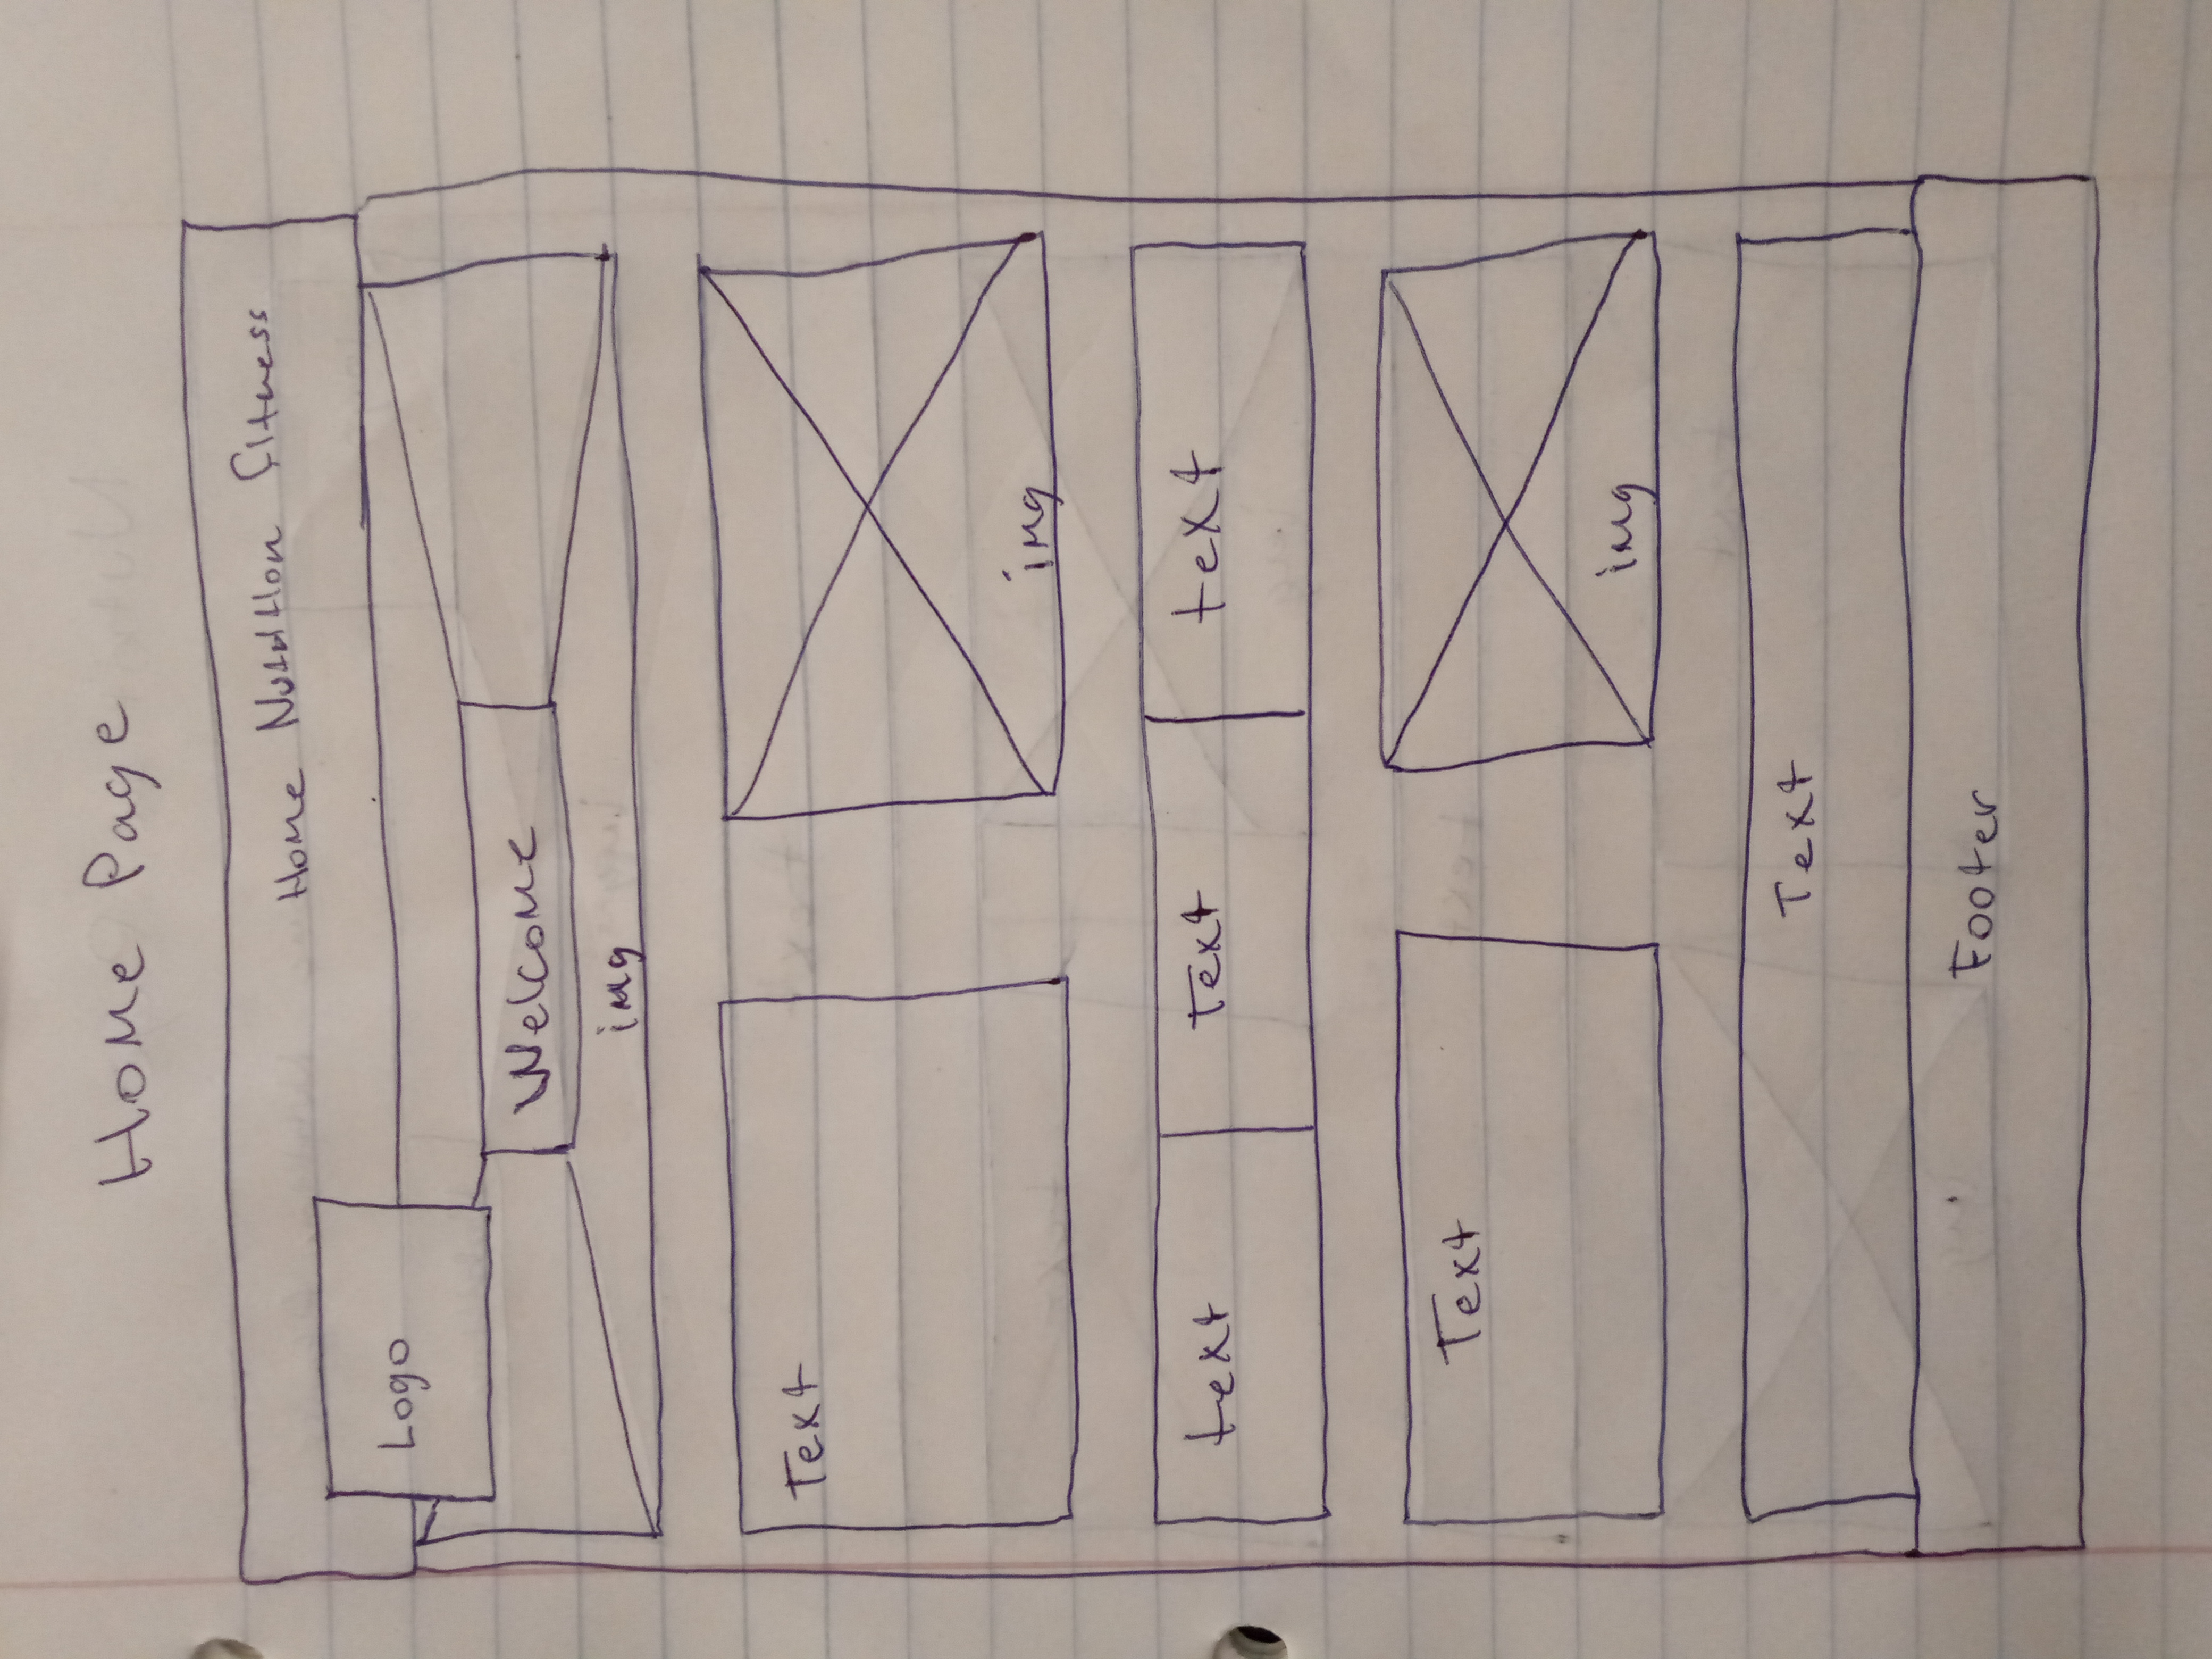 Home Page
Home Nutrition Fitness
Logo
Welcome
img
Text
img
text Text text
Text
img
Text
Footer